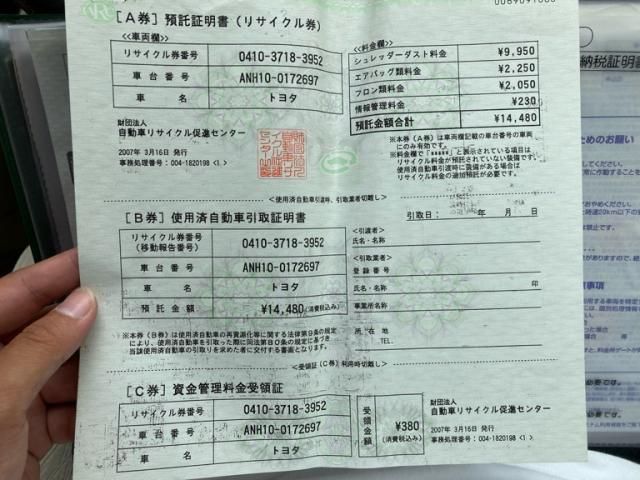 [A券] 預託証明書(リサイクル券)
<<車両欄>>
リサイクル券番号 0410-3718-3952
車台番号 ANH10-0172697
車名 トヨタ
<<料金欄>>
シュレッダーダスト料金 ¥9,950
エアバッグ類料金 ¥2,250
フロン類料金 ¥2,050
情報管理料金 ¥230
預託金額合計 ¥14,480
財団法人
自動車リサイクル促進センター
2007年 3月16日 発行
事務処理番号:004-1820198 <1>
※本券(A券)は車両欄記載の車台番号の車両
にのみ有効です。
※料金欄で「*****」と表示されている項目は
リサイクル料金が預託されていない装備です。
使用済自動車引渡時に装備がある場合は
リサイクル料金の追加預託が必要です。
<使用済自動車引渡時、引取業者切離し>
[B券] 使用済自動車引取証明書
引取日: 年 月 日
リサイクル券番号
(移動報告番号) 0410-3718-3952
車台番号 ANH10-0172697
車名 トヨタ
預託金額 ¥14,480(消費税込み)
<引渡者>
氏名・名称
<引取業者>
登録番号
氏名・名称 印
事業所名称
所在地
TEL.
※本券(B券)は使用済自動車の再資源化等に関する法律第9条の規定
により、使用済自動車を引取る際に同法第80条の規定に基づき
当該使用済自動車の引取りを求めた者に交付する書面となります。
<受領証(C券)利用時切離し>
[C券] 資金管理料金受領証
リサイクル券番号 0410-3718-3952
車台番号 ANH10-0172697
車名 トヨタ
受領金額 ¥380
(消費税込み)
財団法人
自動車リサイクル促進センター
2007年 3月16日 発行
事務処理番号:004-1820198 <1>
納税証明書